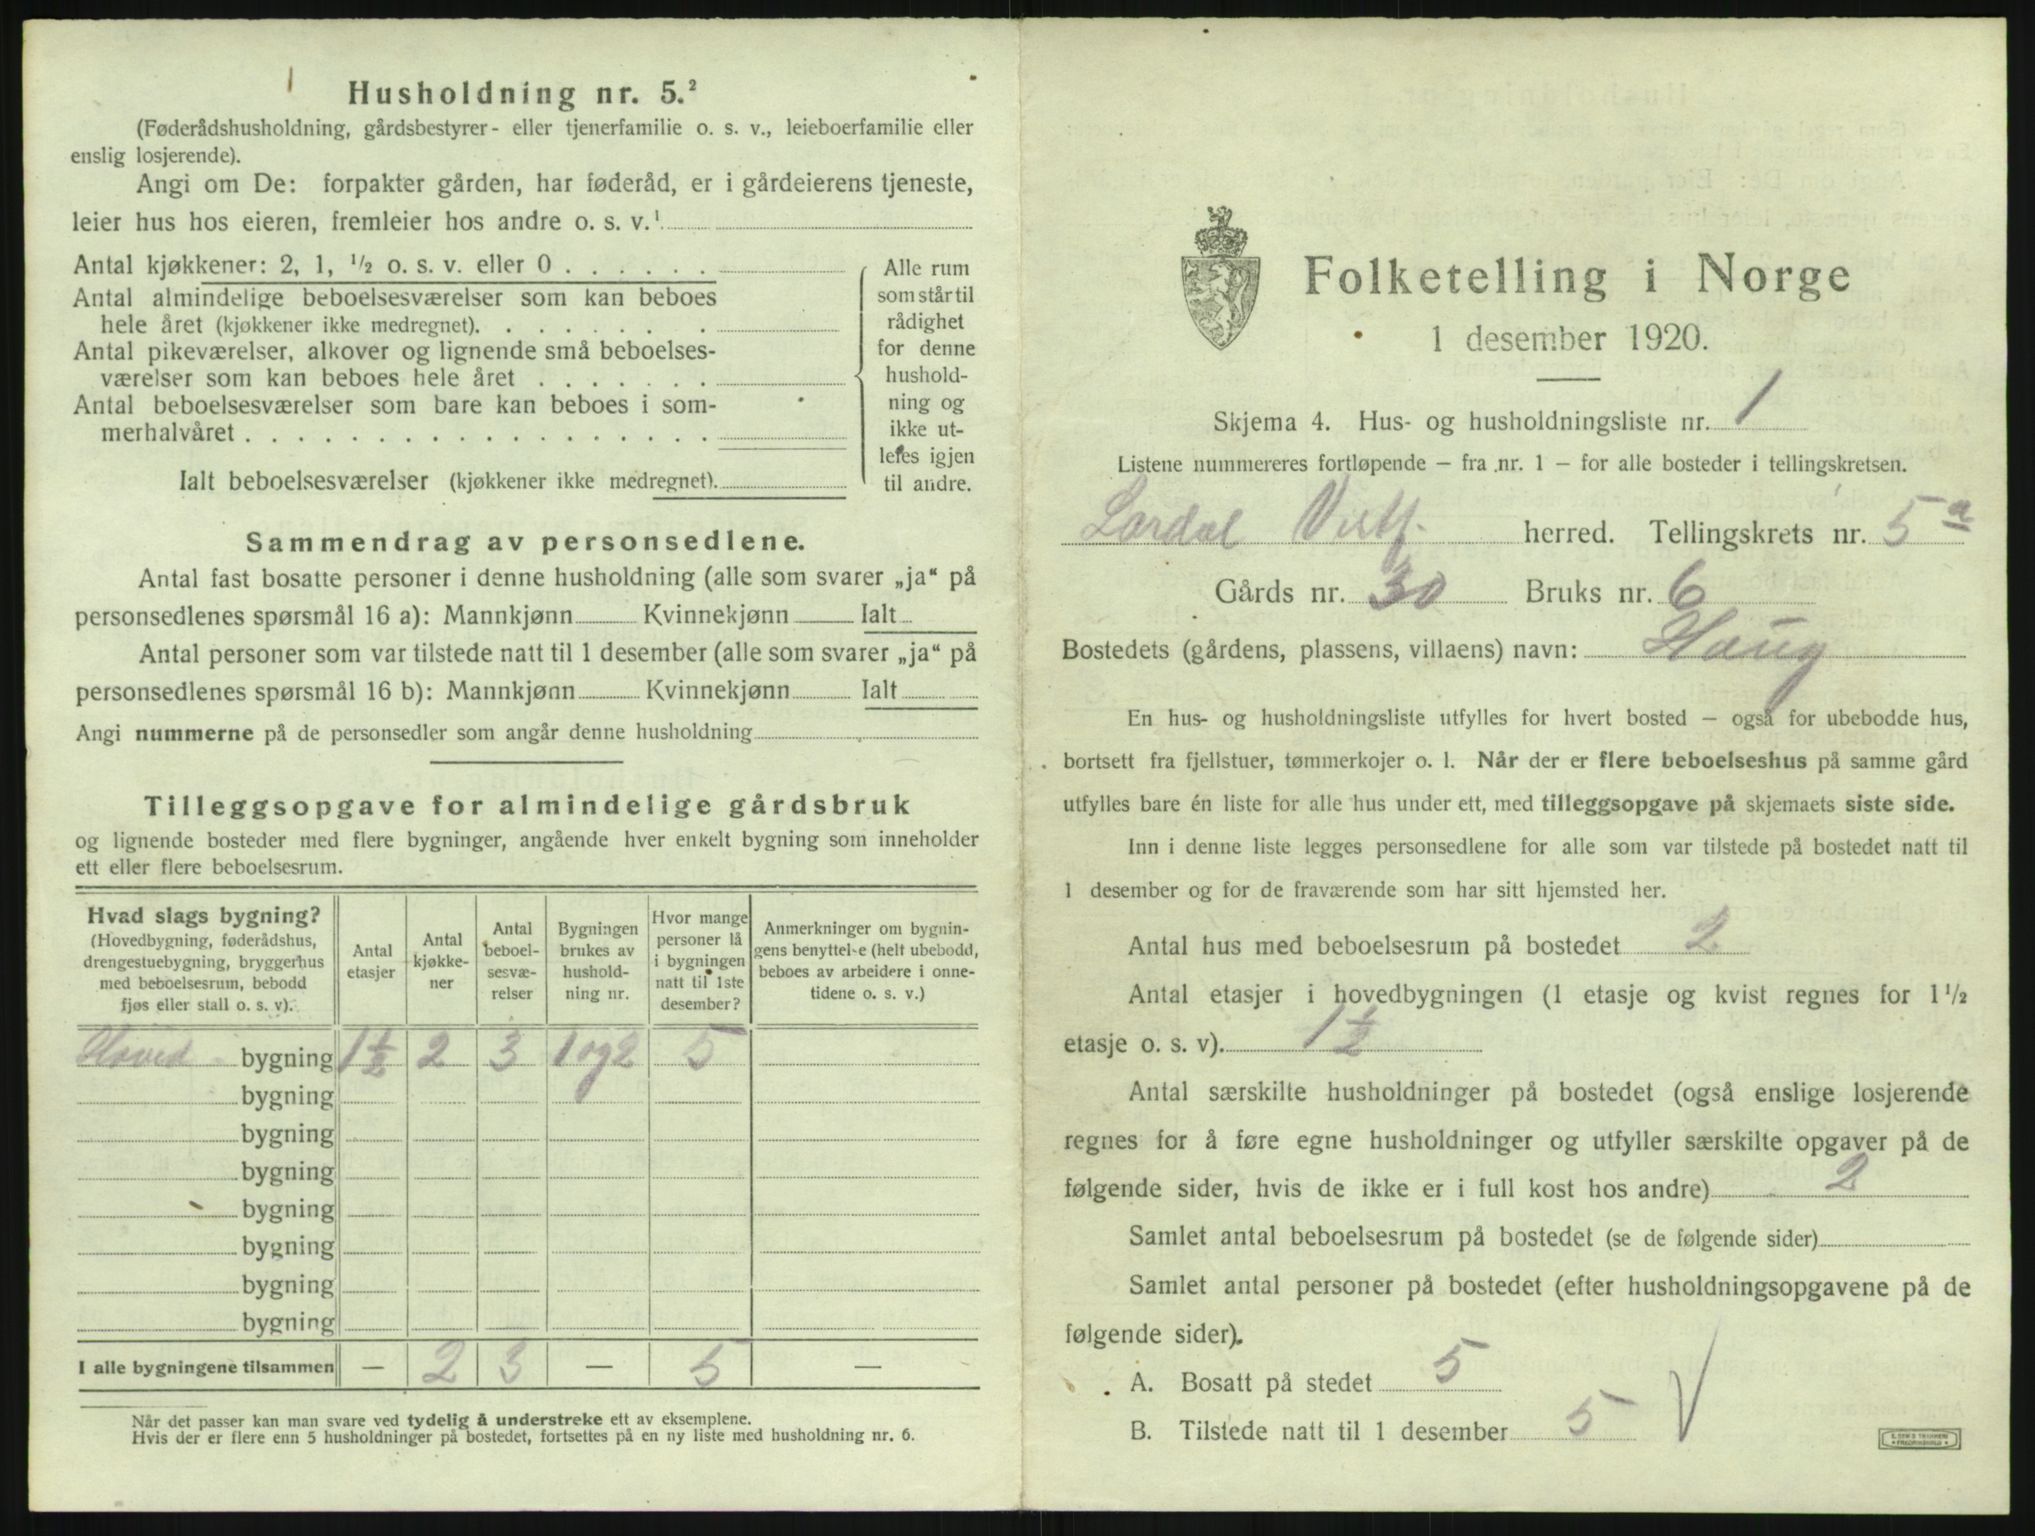 Husholdning nr. 5.²
(Føderådshusholdning, gårdsbestyrer- eller tjenerfamilie o. s. v., leieboerfamilie eller
enslig losjerende).
Angi om De: forpakter gården, har føderåd, er i gårdeierens tjeneste,
leier hus hos eieren, fremleier hos andre o. s. v.¹
Antal kjøkkener: 2, 1, ½ o. s. v. eller 0 . . . . . .
Antal almindelige beboelsesværelser som kan beboes
hele året (kjøkkener ikke medregnet). . . . . . . . .
Antal pikeværelser, alkover og lignende små beboelses-
værelser som kan beboes hele året . . . . . . .
Antal beboelsesværelser som bare kan beboes i som-
merhalvåret . . . . . . . . . . . . . . . . . .
Ialt beboelsesværelser (kjøkkener ikke medregnet).
Alle rum
som står til
rådighet
for denne
hushold-
ning og
ikke ut-
leies igjen
til andre.
Sammendrag av personsedlene.
Antal fast bosatte personer i denne husholdning (alle som svarer „ja“ på
personsedlenes spørsmål 16 a): Mannkjønn Kvinnekjønn Ialt
Antal personer som var tilstede natt til 1 desember (alle som svarer „ja“ på
personsedlenes spørsmål 16 b): Mannkjønn Kvinnekjønn Ialt
Angi nummerne på de personsedler som angår denne husholdning
Tilleggsopgave for almindelige gårdsbruk
og lignende bosteder med flere bygninger, angående hver enkelt bygning som inneholder
ett eller flere beboelsesrum.
Hvad slags bygning?
(Hovedbygning, føderådshus,
drengestuebygning, bryggerhus
med beboelsesrum, bebodd
fjøs eller stall o. s. v).
Antal
etasjer
Antal
kjøkke-
ner
Antal
beboel-
sesvæ-
relser
Bygningen
brukes av
hushold-
ning nr.
Hvor mange
personer lå
i bygningen
natt til 1ste
desember?
Anmerkninger om bygnin-
gens benyttelse (helt ubebodd,
beboes av arbeidere i onne-
tidene o. s. v.)
Hoved bygning 1½ 2 3 1 og 2 5
bygning
bygning
bygning
bygning
bygning
bygning
bygning
I alle bygningene tilsammen — 2 3 — 5 —
Når det passer kan man svare ved tydelig å understreke ett av eksemplene.
Hvis der er flere enn 5 husholdninger på bostedet, fortsettes på en ny liste med husholdning nr. 6.
Folketelling i Norge
1 desember 1920.
Skjema 4. Hus- og husholdningsliste nr. 1
Listene nummereres fortløpende – fra nr. 1 – for alle bosteder i tellingskretsen.
Lardal Vestf. herred. Tellingskrets nr. 5 a
Gårds nr. 30 Bruks nr. 6
Bostedets (gårdens, plassens, villaens) navn: Haug
En hus- og husholdningsliste utfylles for hvert bosted – også for ubebodde hus,
bortsett fra fjellstuer, tømmerkojer o. l. Når der er flere beboelseshus på samme gård
utfylles bare én liste for alle hus under ett, med tilleggsopgave på skjemaets siste side.
Inn i denne liste legges personsedlene for alle som var tilstede på bostedet natt til
1 desember og for de fraværende som har sitt hjemsted her.
Antal hus med beboelsesrum på bostedet 2
Antal etasjer i hovedbygningen (1 etasje og kvist regnes for 1½
etasje o. s. v). 1½
Antal særskilte husholdninger på bostedet (også enslige losjerende
regnes for å føre egne husholdninger og utfyller særskilte opgaver på de
følgende sider, hvis de ikke er i full kost hos andre) 2
Samlet antal beboelsesrum på bostedet (se de følgende sider)
Samlet antal personer på bostedet (efter husholdningsopgavene på de
følgende sider).
A. Bosatt på stedet 5
B. Tilstede natt til 1 desember 5 V